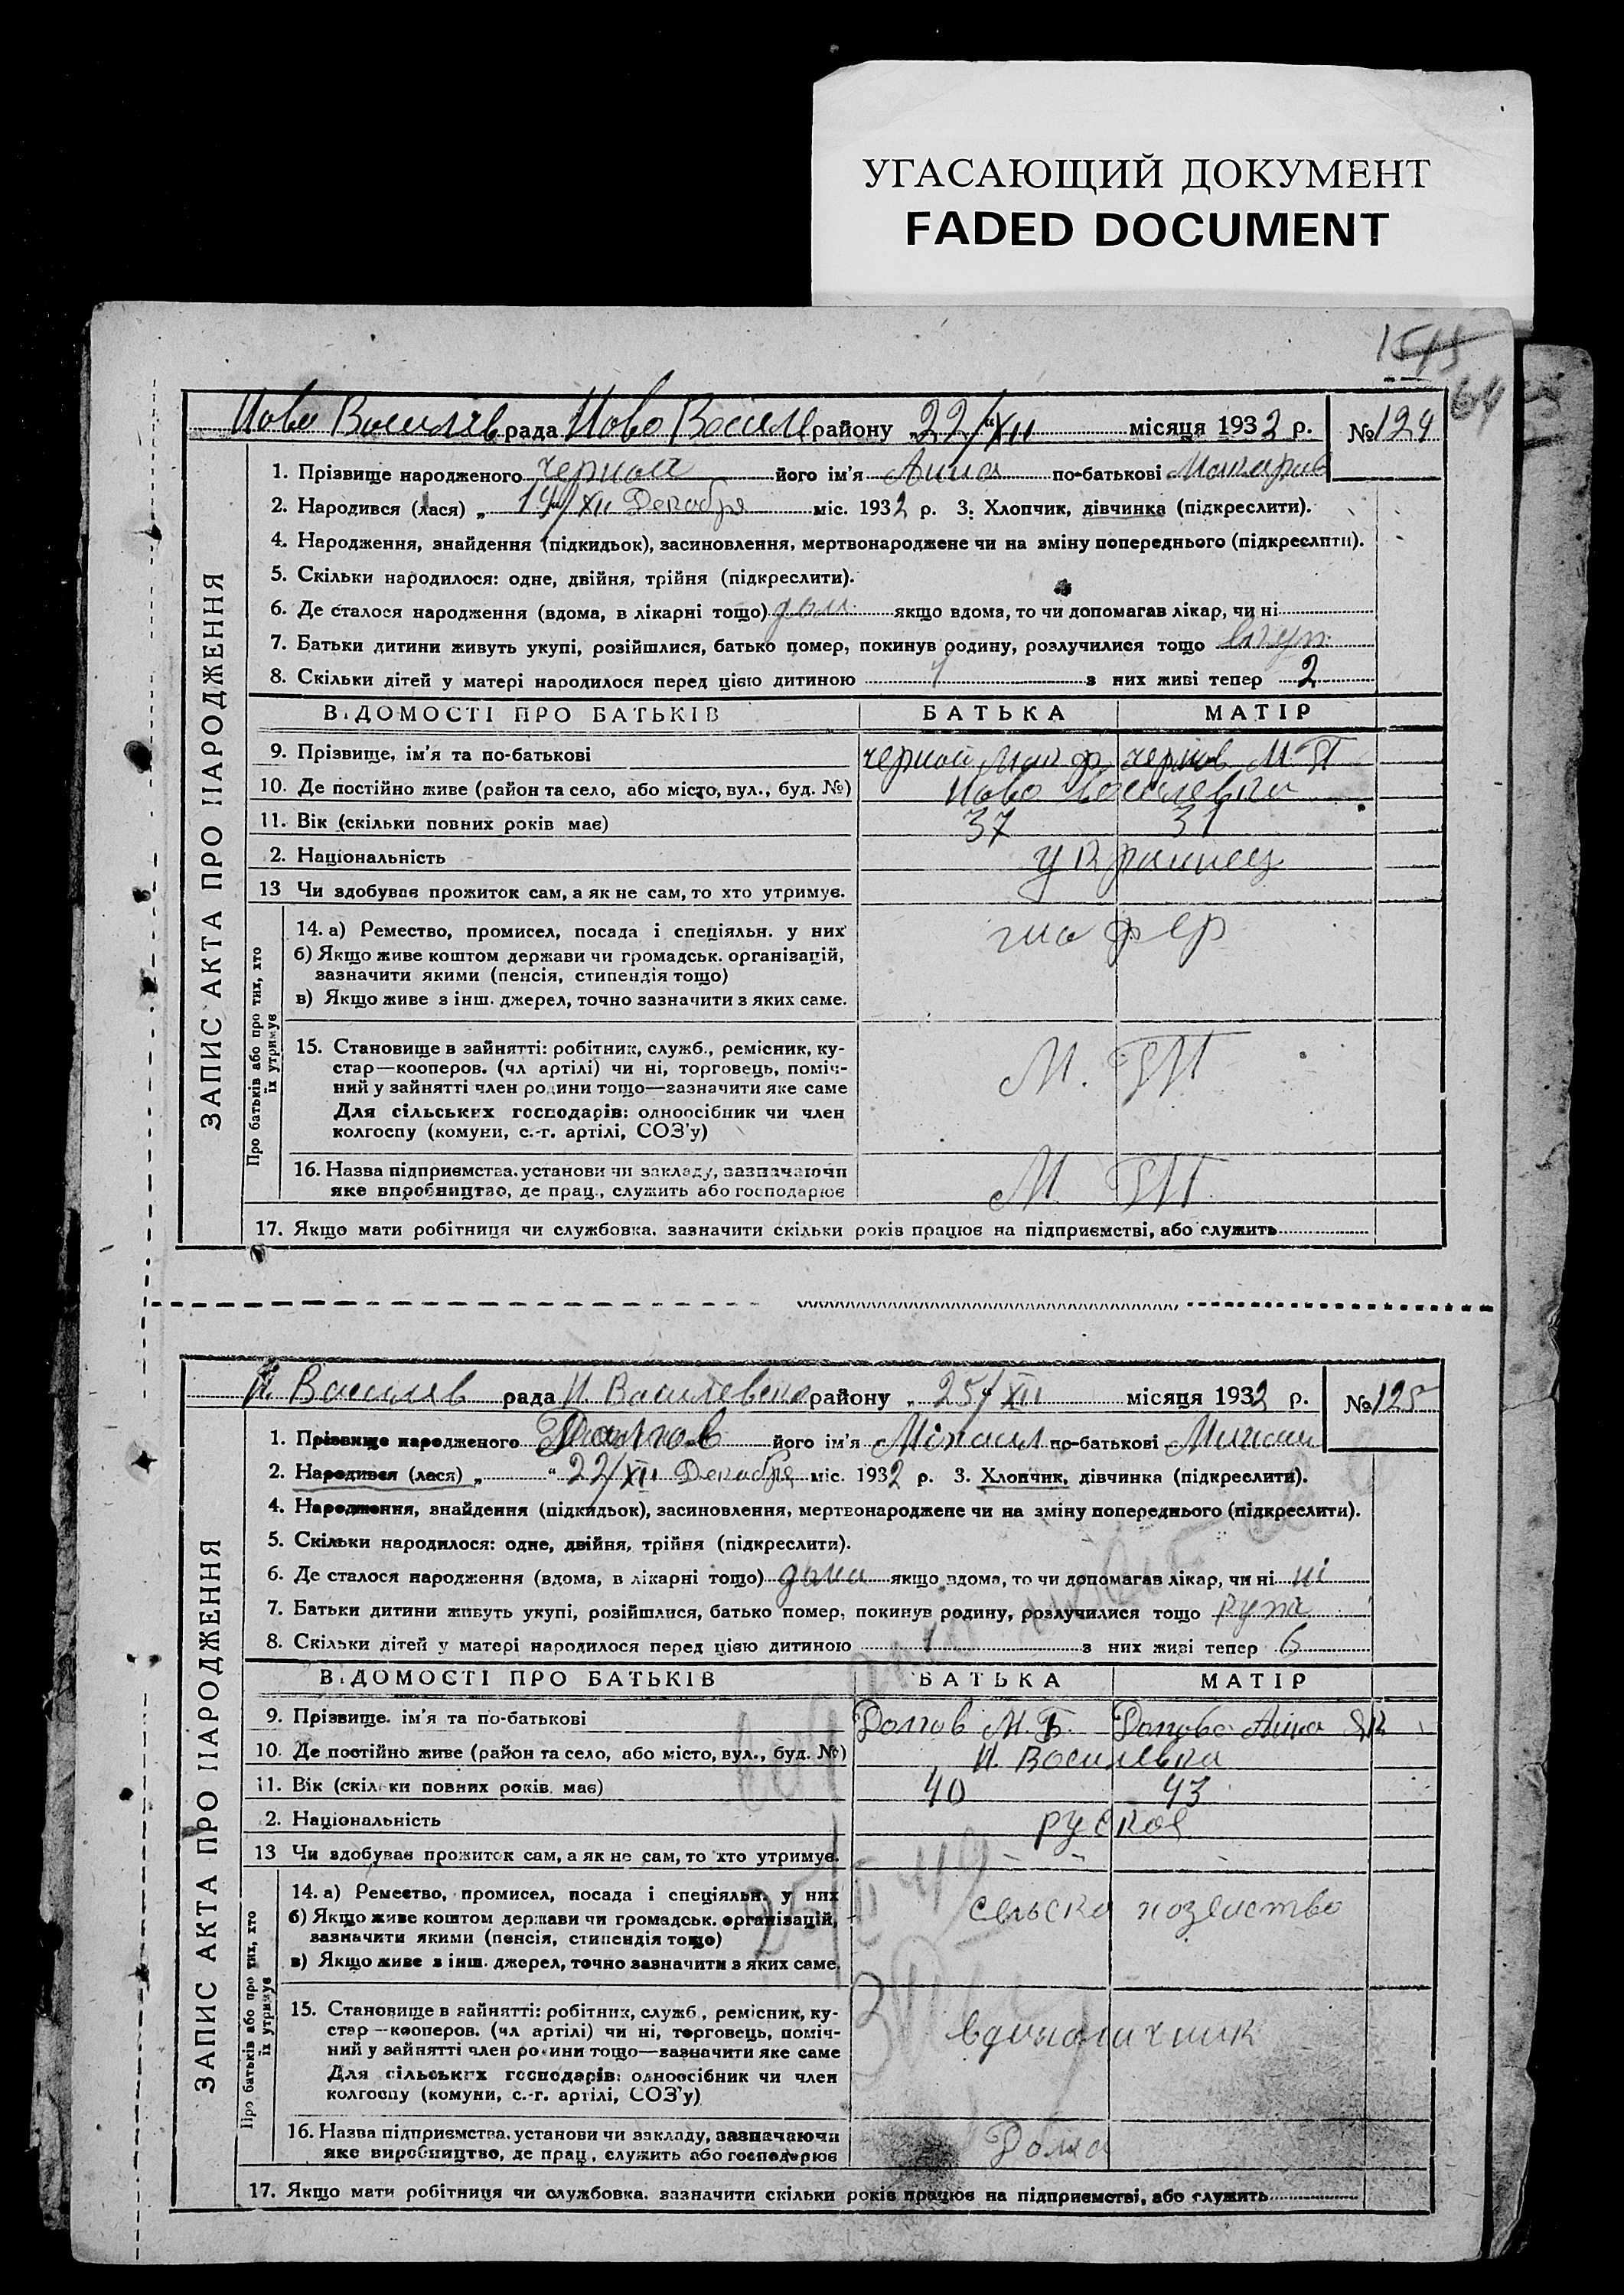 УГАСАЮЩИЙ ДОКУМЕНТ
FADED DOCUMENT
64
Ново Василів рада Ново Васил району 22/XII місяця 1932 р. № 124
1. Прізвище народженого Черной його ім'я Анна по-батькові Макаров
2. Народився (лася) „ 14/XII Декабря міс. 1932 р. 3. Хлопчик, дівчинка (підкреслити).
4. Народження, знайдення (підкидьок), засиновлення, мертвонароджене чи на зміну попереднього (підкреслити).
5. Скільки народилося: одне, двійня, трійня (підкреслити).
6. Де сталося народження (вдома, в лікарні тощо) дом якщо вдома, то чи допомагав лікар, чи ні
7. Батьки дитини живуть укупі, розійшлися, батько помер, покинув родину, розлучилися тощо
8. Скільки дітей у матері народилося перед цією дитиною з них живі тепер 2
ЗАПИС АКТА ПРО НАРОДЖЕННЯ
ВІДОМОСТІ ПРО БАТЬКІВ БАТЬКА МАТІР
9. Прізвище, ім'я та по-батькові Черной Мак Ф. Чернов М. П
10. Де постійно живе (район та село, або місто, вул., буд. №) Ново Василевка
11. Вік (скільки повних років має) 37 31
2. Національність украинец
13 Чи здобуває прожиток сам, а як не сам, то хто утримує.
Про батьків або про тих, хто їх утримує
14. а) Ремество, промисел, посада і спеціяльн. у них шофер
б) Якщо живе коштом держави чи громадськ. організацій,
зазначити якими (пенсія, стипендія тощо)
в) Якщо живе з інш. джерел, точно зазначити з яких саме.
15. Становище в зайнятті: робітник, служб., ремісник, ку-
стар—кооперов. (чл артілі) чи ні, торговець, поміч-
ний у зайнятті член родини тощо—зазначити яке саме
Для сільських господарів: одноосібник чи член
колгоспу (комуни, с.-г. артілі, СОЗ'у)
16. Назва підприємства, установи чи закладу, зазначаючи
яке виробництво, де прац., служить або господарює
17. Якщо мати робітниця чи службовка, зазначити скільки років працює на підприємстві, або служить
Н. Василів рада Н Василевска району „ 25/XII місяця 1932 р. № 125
1. Прізвище народженого його ім'я Міхаил по-батькові Михаил
2. Народився (лася) „ “ 22/XII Декабря міс. 1932 р. 3. Хлопчик, дівчинка (підкреслити).
4. Народження, знайдення (підкидьок), засиновлення, мертвонароджене чи на зміну попереднього (підкреслити).
5. Скільки народилося: одне, двійня, трійня (підкреслити).
6. Де сталося народження (вдома, в лікарні тощо) дома якщо вдома, то чи допомагав лікар, чи ні ні
7. Батьки дитини живуть укупі, розійшлися, батько помер, покинув родину, розлучилися тощо
8. Скільки дітей у матері народилося перед цією дитиною з них живі тепер 6
ЗАПИС АКТА ПРО НАРОДЖЕННЯ
ВІДОМОСТІ ПРО БАТЬКІВ БАТЬКА МАТІР
9. Прізвище, ім'я та по-батькові М. Б. Анна
10. Де постійно живе (район та село, або місто, вул., буд. №) Н. Василевка
11. Вік (скільки повних років має) 40 43
2. Національність руской
13 Чи здобуває прожиток сам, а як не сам, то хто утримує.
Про батьків або про тих, хто їх утримує
14. а) Ремество, промисел, посада і спеціяльн. у них сельско хозяство
б) Якщо живе коштом держави чи громадськ. організацій,
зазначити якими (пенсія, стипендія тощо)
в) Якщо живе з інш. джерел, точно зазначити з яких саме.
15. Становище в зайнятті: робітник, служб., ремісник, ку-
стар—кооперов. (чл артілі) чи ні, торговець, поміч-
ний у зайнятті член родини тощо—зазначити яке саме
Для сільських господарів: одноосібник чи член
колгоспу (комуни, с.-г. артілі, СОЗ'у)
16. Назва підприємства, установи чи закладу, зазначаючи
яке виробництво, де прац., служить або господарює Дома
17. Якщо мати робітниця чи службовка, зазначити скільки років працює на підприємстві, або служить